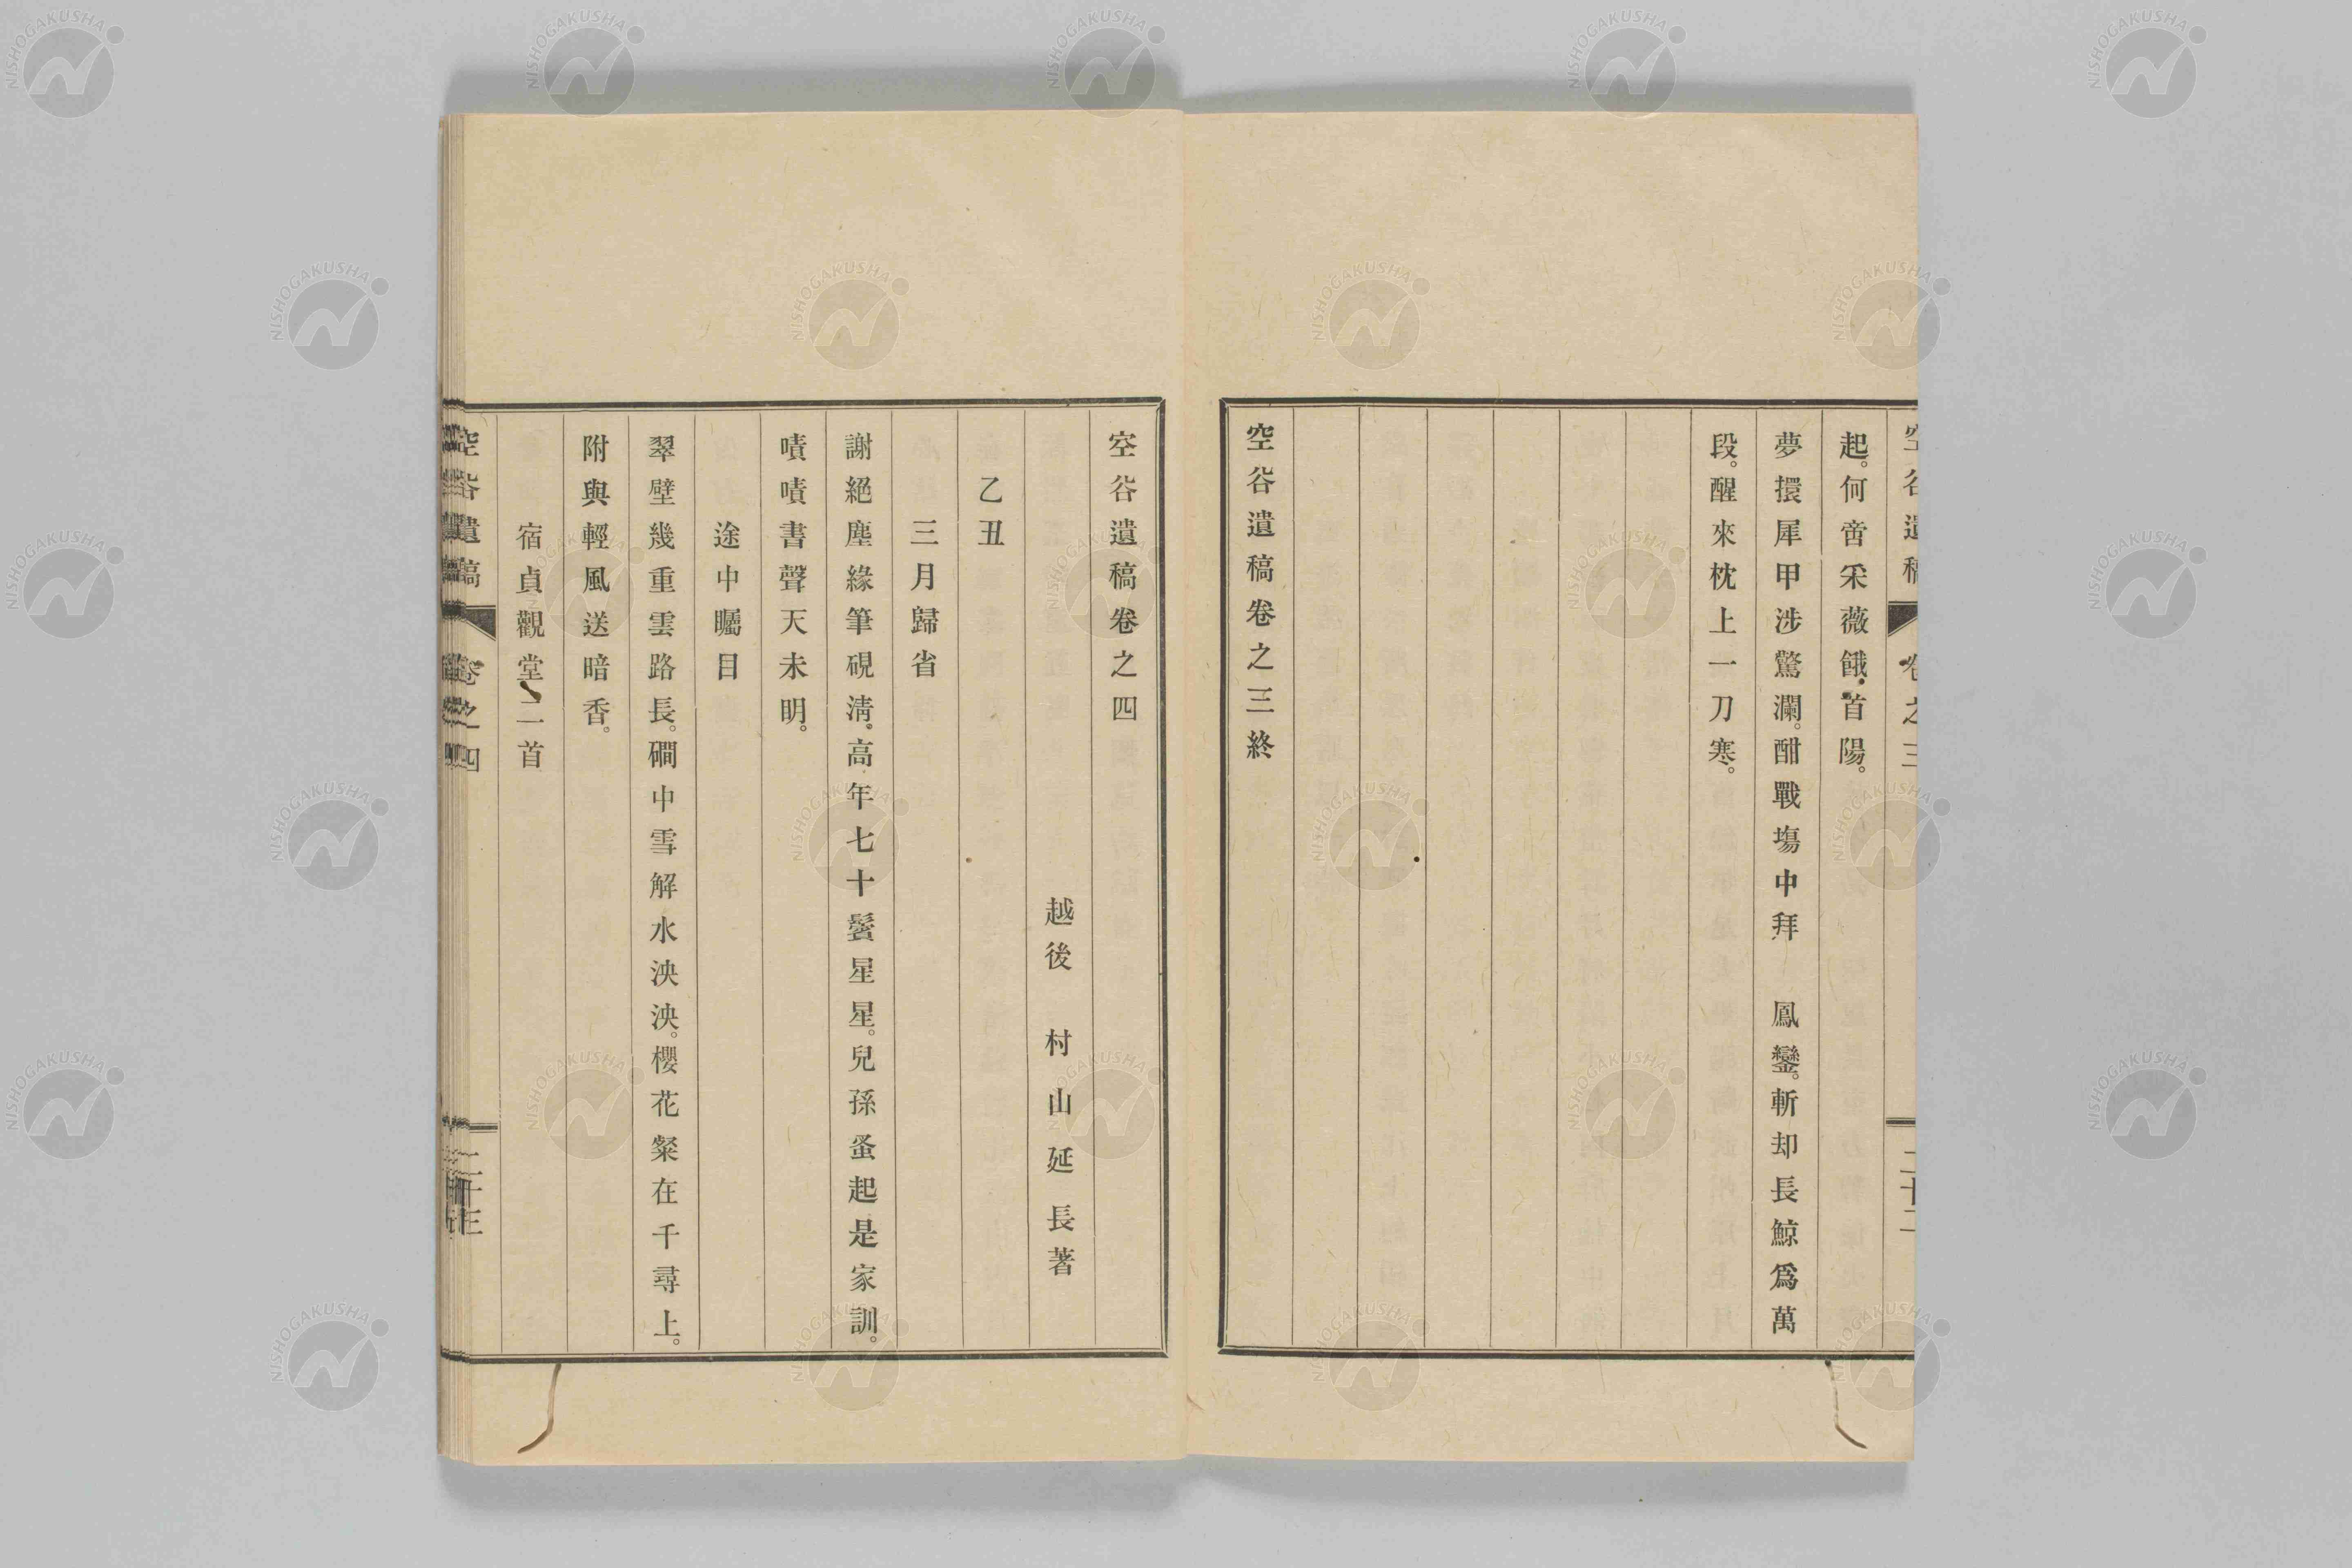 起。何啻采薇餓首陽。
夢擐犀甲涉驚瀾。酣戰塲中拜　鳳鑾。斬却長鯨爲萬
段。醒來枕上一刀寒。
空谷遺稿卷之三終
空谷遺稿卷之四
越後　村山延長著
乙丑
三月歸省
謝絕塵緣筆硯淸。高年七十鬢星星。兒孫蚤起是家訓。
嘖嘖書聲天未明。
途中矚目
翠壁幾重雲路長。磵中雪解水泱泱。櫻花粲在千尋上。
附與輕風送暗香。
宿貞觀堂二首
空谷遺稿
卷之四
NISHOGAKUSHA